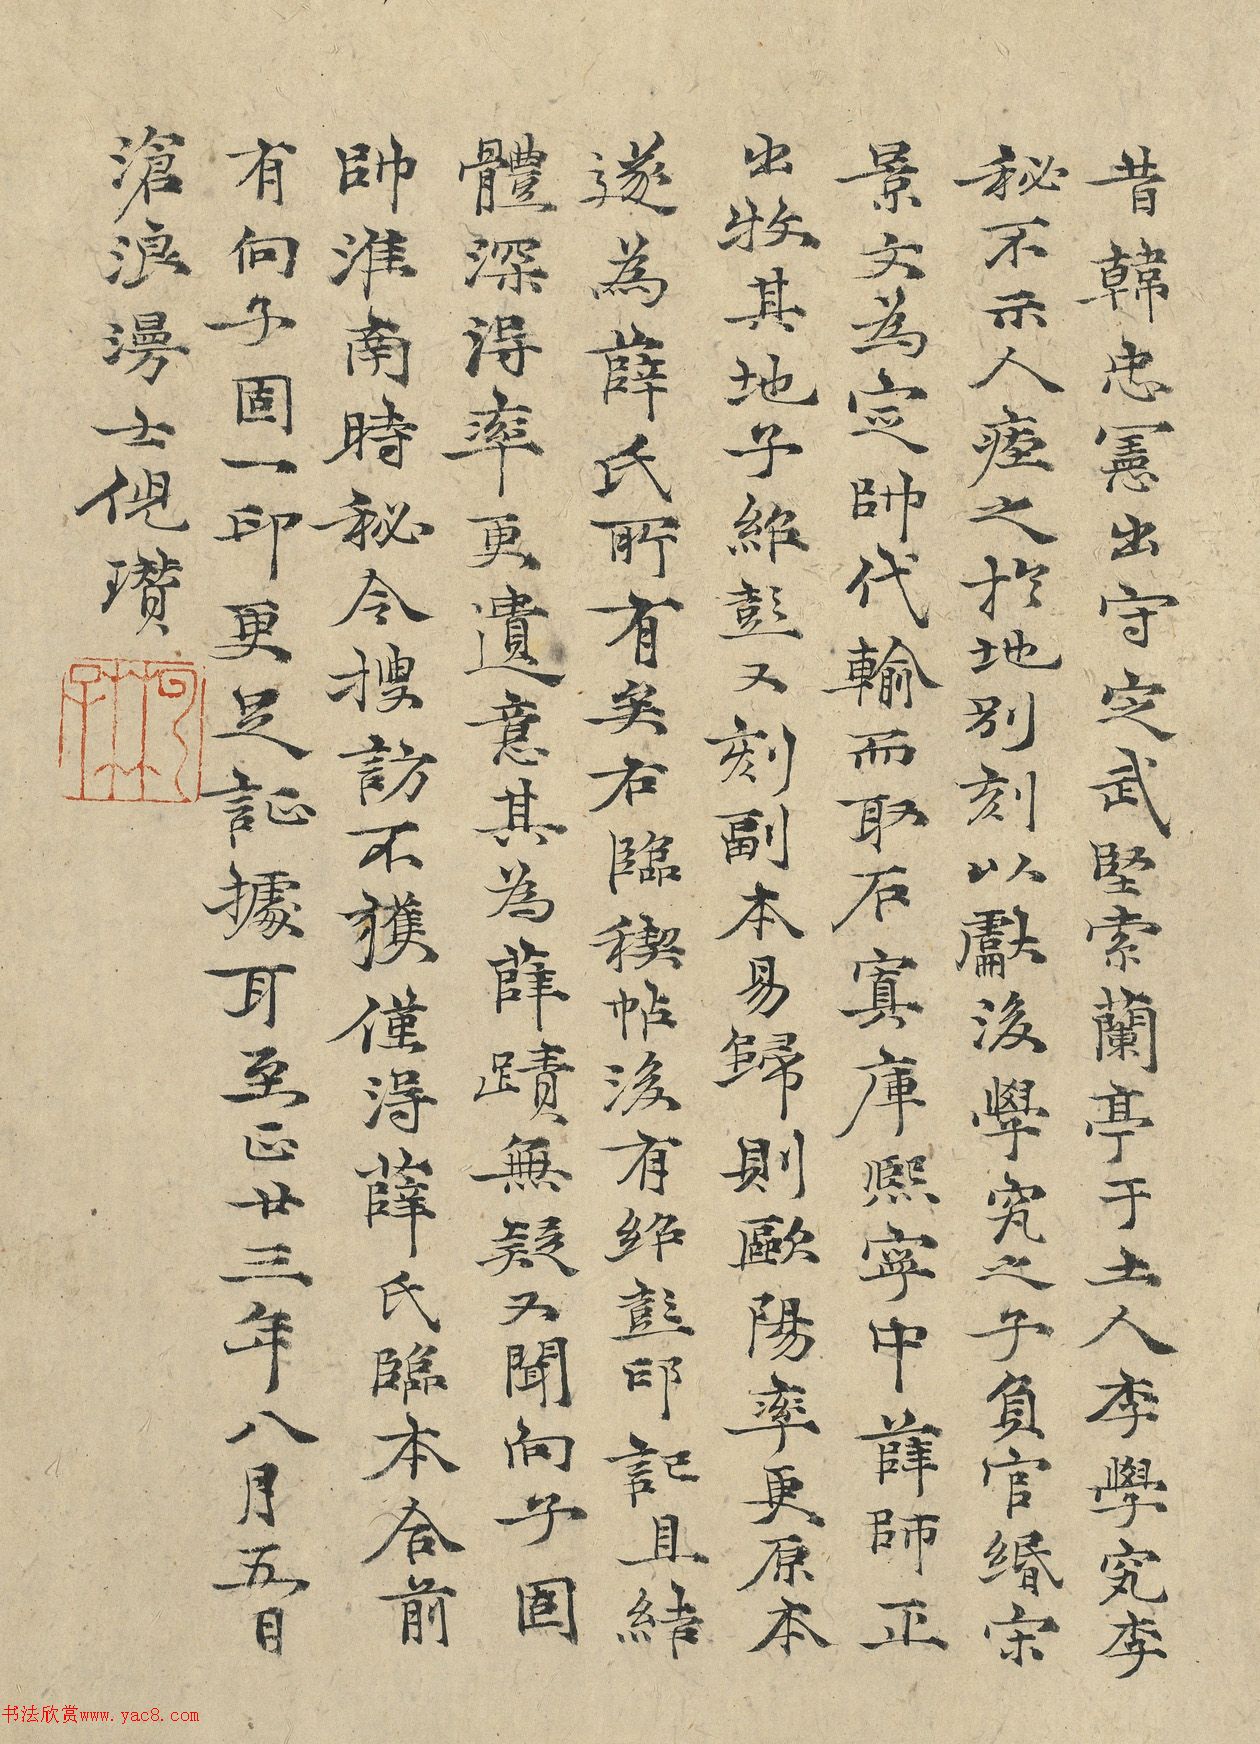 昔韓忠憲出守定武堅索蘭亭于土人李學究李
秘不示人瘞之於地別刻以獻後學究之子負官緡宋
景文為定帥代輸而取石寘庫熙寧中薛師正
出牧其地子紹彭又刻副本易歸則歐陽率更原本
遂為薛氏所有矣右臨稧帖後有紹彭印記且結
體深得率更遺意其為薛蹟無疑又聞向子固
帥淮南時秘令搜訪不獲僅得薛氏臨本合前
有向子固一印更足証據耳至正廿三年八月五日
滄浪漫士倪瓚
书法欣赏www.yac8.com